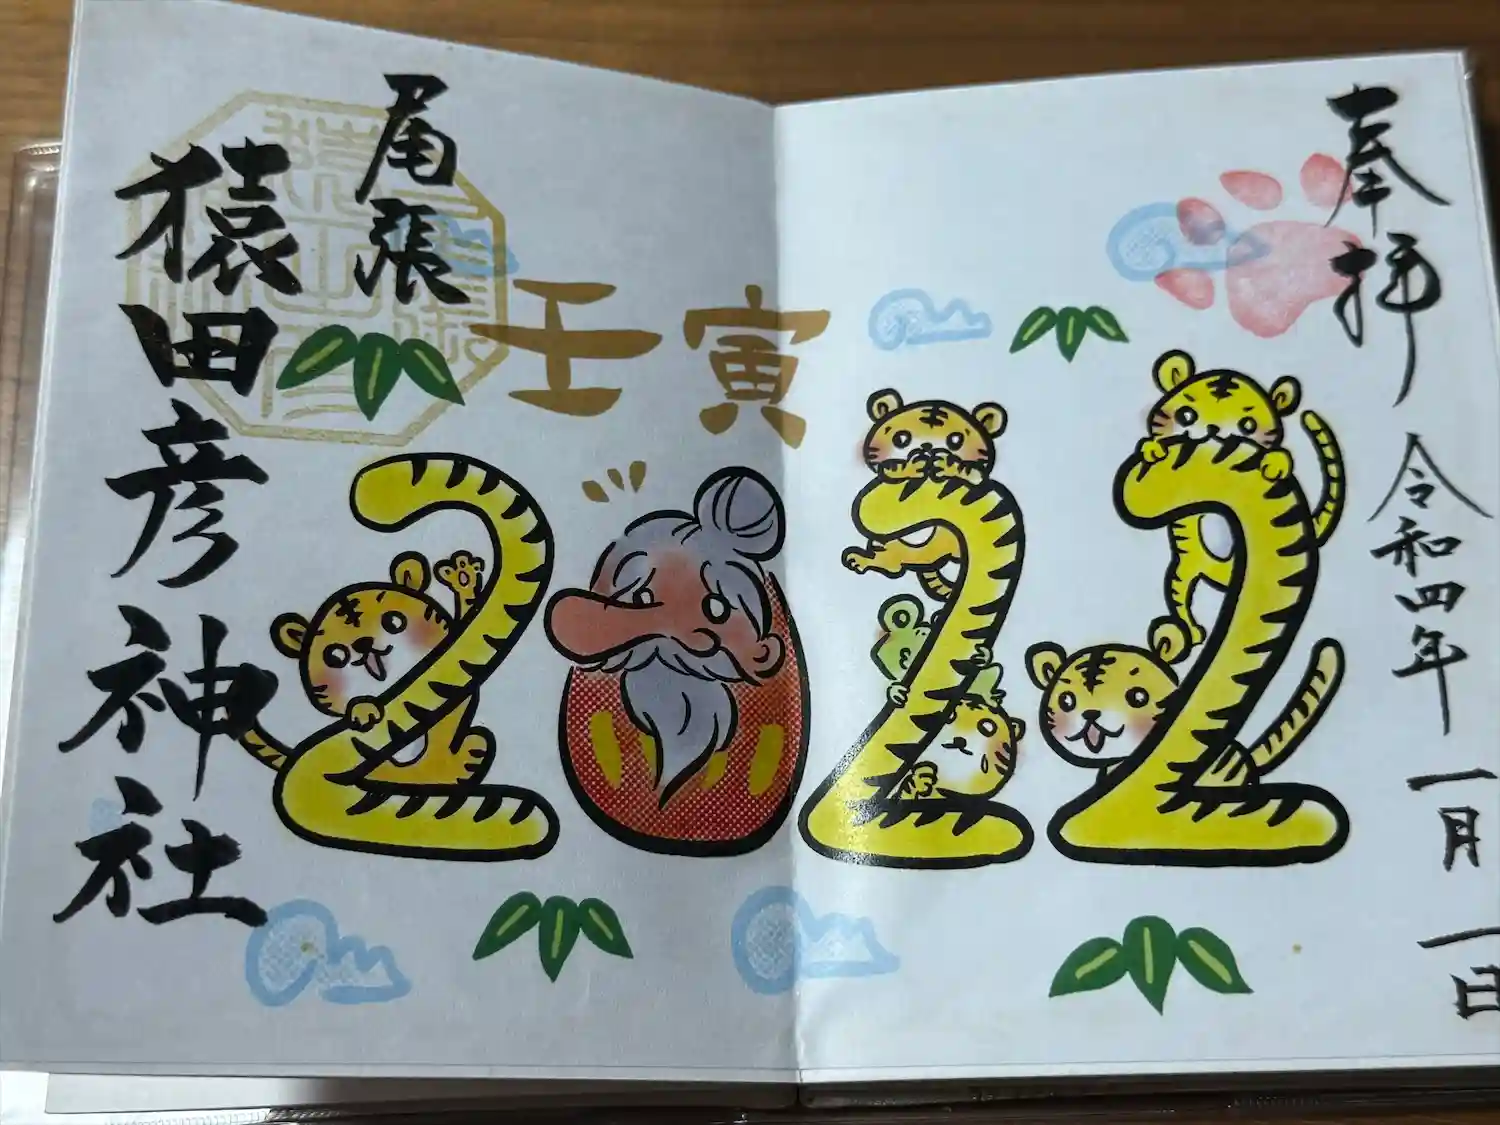 奉拝
令和四年一月一日
壬寅
2022
尾張
猿田彦神社